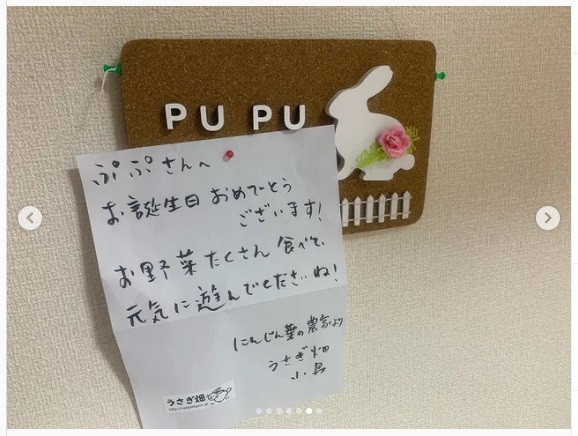 PU PU
ぷぷさんへ
お誕生日 おめでとう
ございます!
お野菜たくさん 食べて、
元気に遊んでくださいね!
にんじん葉の農家より
うさぎ畑
小島
うさぎ畑